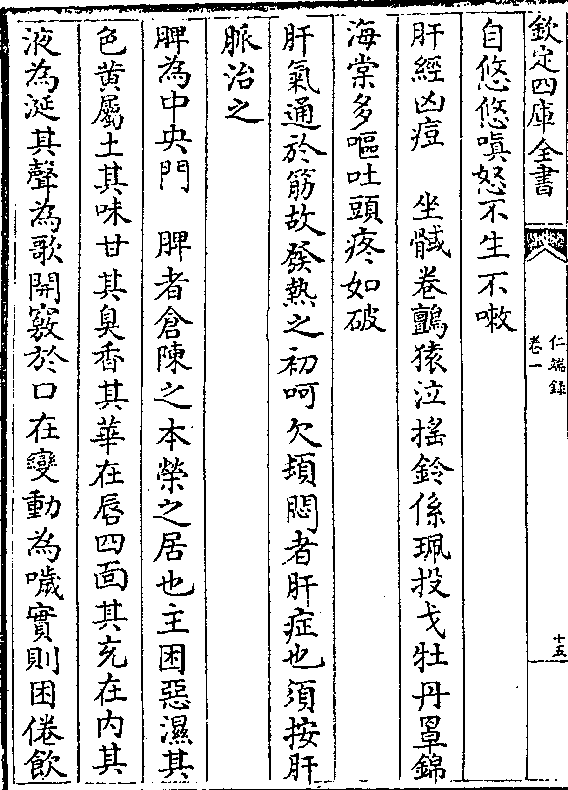 欽定四庫全書
仁端錄
卷一
十五
自悠悠嗔怒不生不嗽
肝經凶痘　坐䤋卷鸝猿泣搖鈴係珮投戈牡丹罩錦
海棠多嘔吐頭疼如破
肝氣通於筋故發熱之初呵欠頓悶者肝症也須按肝
脈治之
脾為中央門　脾者倉陳之本榮之居也主困惡濕其
色黄屬土其味甘其臭香其華在唇四面其充在内其
液為涎其聲為歌開竅於口在變動為噦實則困倦飲